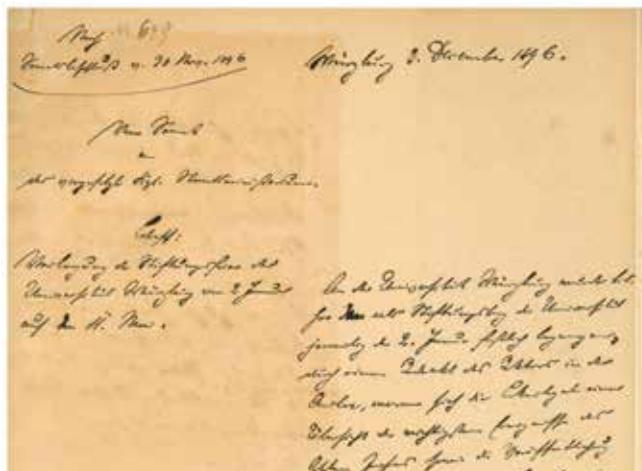 Nach
Senatsbeschluß v. 30 Nov. 1896
Würzburg 3. Dezember 1896.
Vom Senat
an
das vorgesetzte Kgl. Staatsministerium.
Betreff:
Verlegung der Stiftungsfeier der
Universität Würzburg vom 2 Januar
auf den 11. Mai.
An der Universität Würzburg wurde bis
her als Stiftungstag der Universität
jeweilig der 2. Januar festlich begangen
durch einen Redeakt des Rektors in der
Aula, woran sich die Bekanntgabe einer
Übersicht der wichtigsten Ereignisse des
alten Jahres sowie die Veröffentlichung